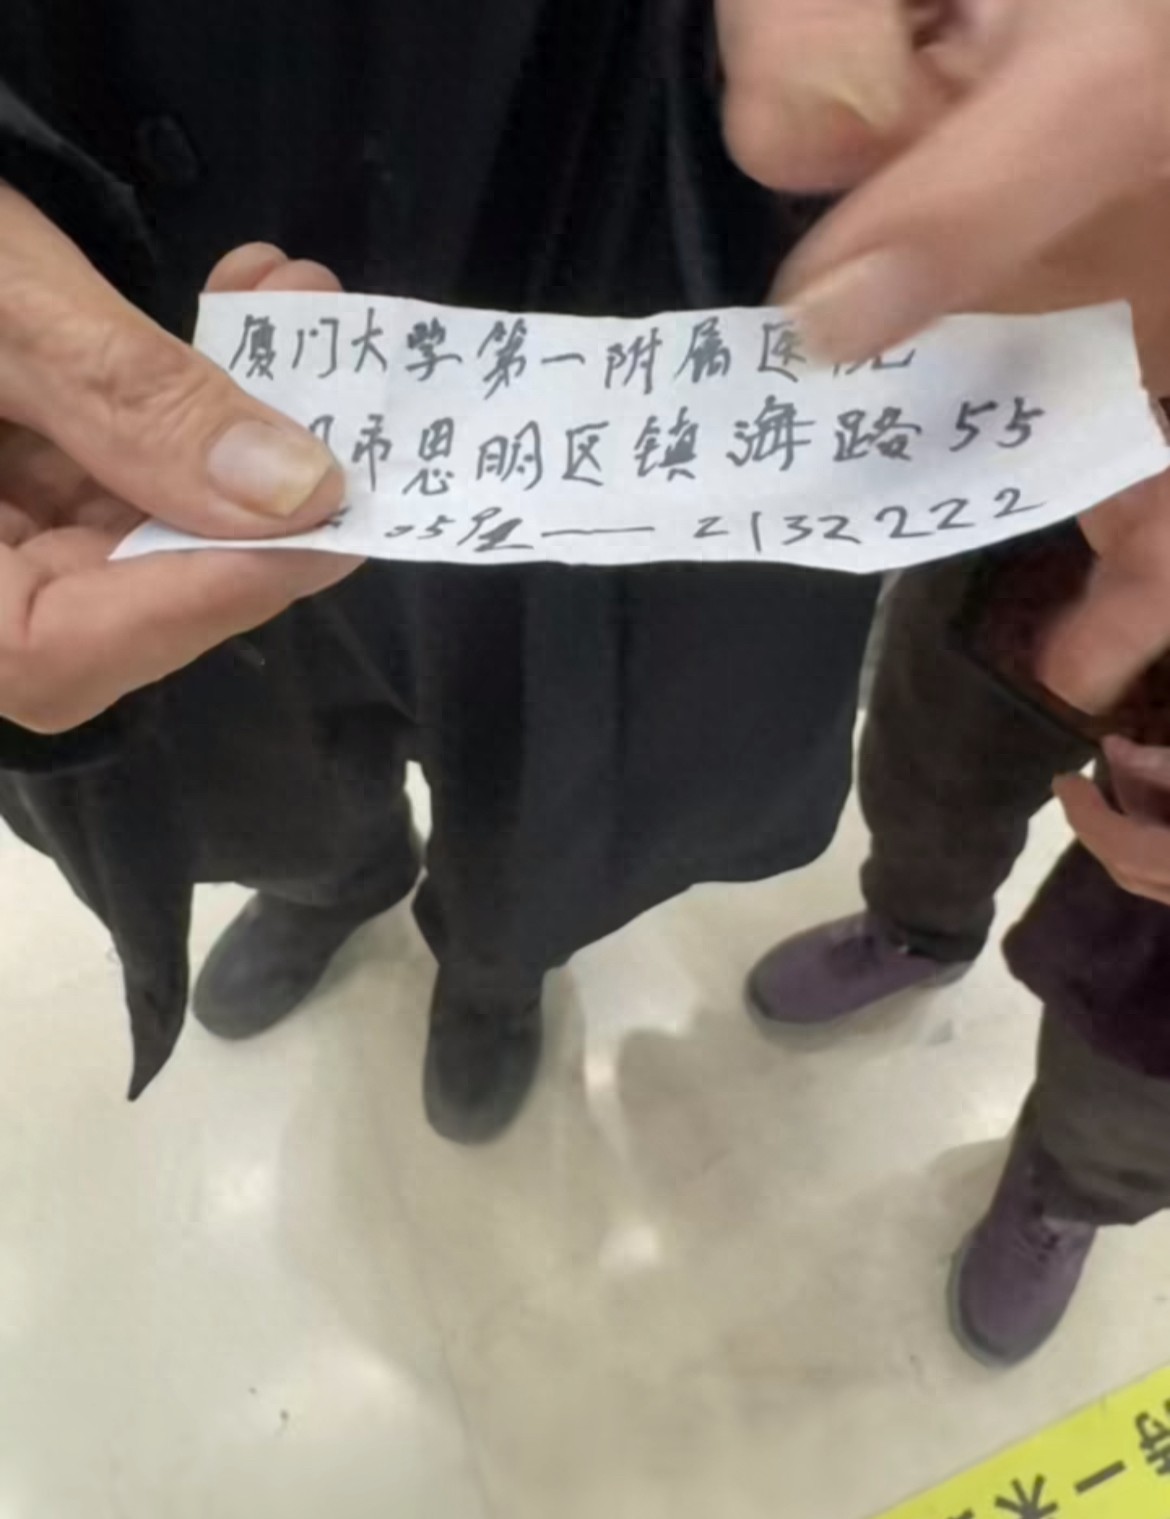 厦门大学第一附属医院
门市思明区镇海路55
0592——2132222
米一